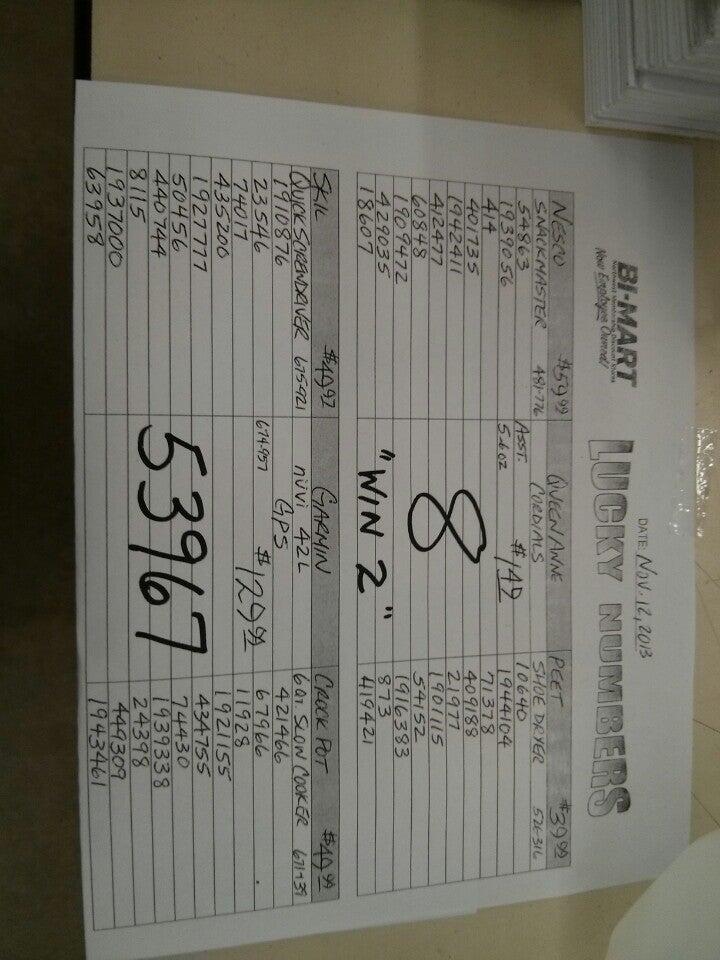 BI-MART
Now Employee Owned!
DATE: NOV. 12, 2013
LUCKY NUMBERS
NESCO $59.99
SNACKMASTER 481-776
54863
1939056
414
401735
1942411
412477
60848
1909472
429035
18607
QUEEN ANNE
CORDIALS
ASST. $1.49
5-602
8
"WIN 2"
PEET $39.99
SHOE DRYER 526316
10640
1944104
71378
409188
21977
1901115
54152
1916383
873
419421
SKIL $49.97
QUICK SCREWDRIVER 675-421
1910876
23546
74017
435200
1927777
50456
440744
8115
1937000
63958
GARMIN
nüvi 42L
GPS
674-957 $129.99
53967
CROCK POT $49.99
6QT. SLOW COOKER
421466
67966
11928
1921155
434755
74430
1939338
24398
449309
1943461